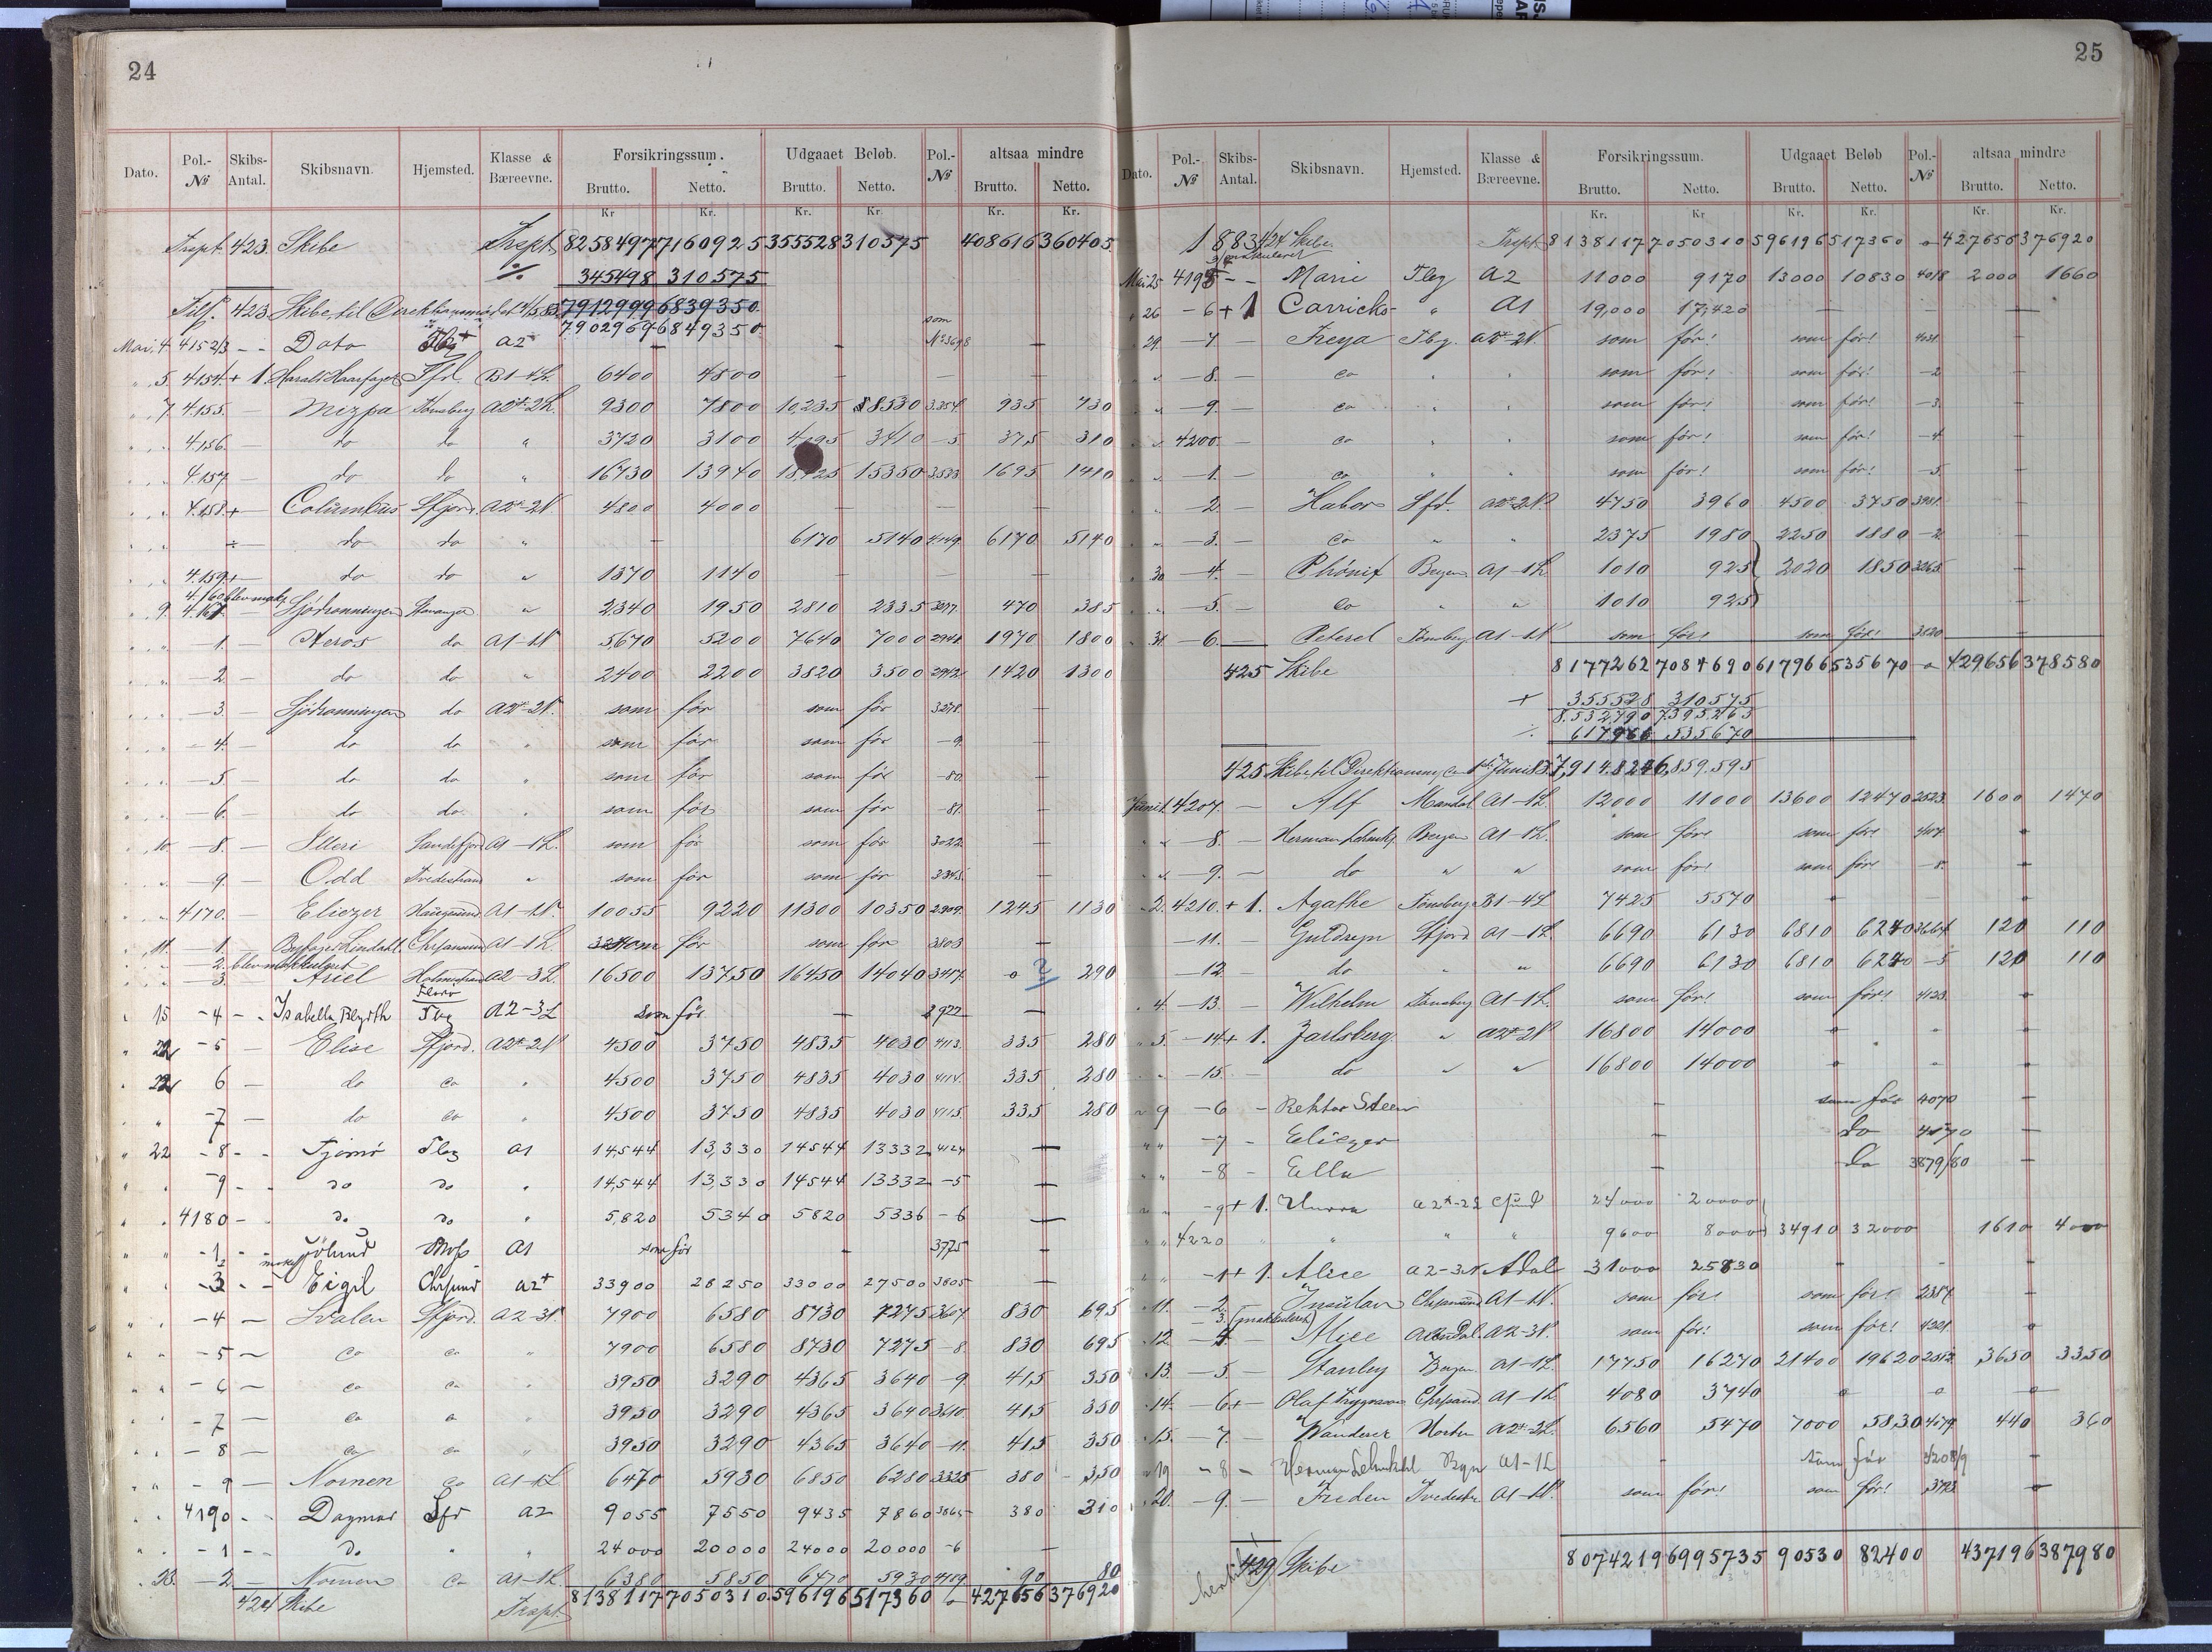 24
Dato. Pol.-№ Skibs-Antal. Skibsnavn. Hjemsted. Klasse & Bæreevne. Forsikringssum. Brutto. Netto. Udgaaet Beløb. Brutto. Netto. Pol.-№ altsaa mindre Brutto. Netto.
Kr Kr. Kr. Kr. Kr. Kr.
Trspt. 423. Skibe Trspt. 8258497 7160925 355528 310575 408616 360405
% 345498 310575
Tils. 423 Skibe, til Direktionsmødet 7912999 6839350
7902969 6849350
Mai. 4 4152/3 - - Dato Tbg A2 — — som № 3698 —
" 5 4154. + 1. Harald Haarfager Sfd. B1-4L. 6400 4800 — — —
" 7 4155. — Mizpa Tønsberg A2*-2L. 9300 7800 10,235 8530 3354 935 730
" " 4156. — do do " 3720 3100 4095 3410 -5 375 310
" " 4157 — do do " 16730 13940 15350 3533 1695 1410
" " 4158 + — Columbus Sfjord. A2*-2N. 4800 4000 — — —
" " ÷ do do " — 6170 5140 4149 6170 5140
" " 4.159 + — do do " 1370 1140 — — —
4.160 blev mak.
" 9 4.161. — Sjødronningen Stavanger " 2340 1950 2810 2335 3277 470 385
" " -1. — Heros do A1-1N 5670 5200 7640 7000 2941 1970 1800
" " -2 — do do " 2400 2200 3820 3500 2942 1420 1300
" " -3. — Sjødronningen do A2*-2N. som før som før 3278 —
" " -4. — do do " som før som før -9. —
" " -5 — do do " som før som før -80. —
" " -6. — do do " som før som før -81. —
" 10 -8. — Illeri Sandefjord A1-1L. som før som før 3022 —
" " -9. — Odd Tvedestrand " som før som før 2345. —
" " 4170. — Eliezer Haugesund A1-1N. 10055 9220 11300 10350 2909. 1245 1130
" 11. -1. — Byfoged Lindahl Chrsansund A1-1L som før som før 3803 —
2. blev makkuleret
" " -3. — Ariel Holmestrand A2-3L. 16500 13750 16450 14040 3417. o ? 290
Florø
" 15 -4 - - Isabella Blyth Tbg A2-3L som før — 3922 —
" 22 -5 — Elise Sfjord. A2*-2N 4500 3750 4835 4030 4113. 335 280
" 22 6 — do co " 4500 3750 4835 4030 4114. 335 280
" " -7 — do co " 4500 3750 4835 4030 4115. 335 280
" 22 -8 - - Tjømø Tbg A1 14,544 13,330 14544 13332 4124 —
" " -9 - - do do " 14,544 13,330 14544 13332 -5 —
" " 4180 - - do do " 5,820 5340 5820 5336 -6 —
" " -1 - - Jølund Moss A1 som før — 3775 —
2 mak
" " -3 - - Eigil Chrsund A2+ 33900 28250 33000 27500 3805 —
" " -4 — Svalen Sfjord. A2-3N. 7900 6580 8730 7275 3607 830 695
" " -5 — co co " 7900 6580 8730 7275 -8 830 695
" " -6 — co co " 3950 3290 4365 3640 -9 415 350
" " -7 — co co " 3950 3290 4365 3640 3610. 415 350
" " -8 — co co " 3950 3290 4365 3640 -11. 415 350
" " -9 — Nornen co A1-1L. 6470 5930 6850 6280 3325 380 350
" " 4190 - - Dagmar Sfr A2 9055 7550 9435 7860 3865 380 310
" " -1 - - do " " 24000 20000 24000 20000 -6 —
" 23. -2. — Nornen co A1-1L. 6380 5850 6470 5930 4189 90 80
424 Skibe Trspt. 8138117 7050310 596196 517360 o 427656 376920
25
Dato. Pol.-№ Skibs-Antal. Skibsnavn. Hjemsted. Klasse & Bæreevne. Forsikringssum. Brutto. Netto. Udgaaet Beløb Brutto. Netto. Pol.-№ altsaa mindre Brutto. Netto.
Kr. Kr Kr. Kr. Kr. Kr.
1883 424 Skibe Trspt. 8138117 7050310 596196 517360 o 427656 376920
makuleret
Mai 25 4195 - - Marie Tbg A2 11000 9170 13000 10830 4018 2000 1660
" 26 -6 + 1 Carricks " A1 19,000 17,420 — — —
" 29. -7 — Freya Tbg. A2*-2N. som før! som før! 4031. —
" " -8. — co " " som før! som før! -2 —
" " -9. — co " " som før! som før! -3. —
" " 4200. — co " " som før! som før! -4 —
" " -1. — co " " som før! som før! -5. —
" " -2. — Habor Sfd. A2*-2N. 4750 3960 4500 3750 3981. —
" " -3. — co " " 2375 1980 2250 1880 -2 —
" 30 -4. — Phønix Bergen A1-1L 1010 925 2020 1850 3265. —
" " -5. — co " " 1010 925
" 31. -6. — Peterel Tønsberg A1-1N som før! som før! 3520 —
425 Skibe 8177262 7084690 617966 535670 o 429656 378580
+ 355528 310575
8,532790 7395265
÷ 617966 535670
425 Skibe, til Direktionsmø. Juni 83 7,914.824 6,859.595
Juni 1. 4207. — Alf Mandal A1-1L 12000 11000 13600 12470 2523. 1600 1470
" " -8. — Herman Lehmkhl. Bergen A1-1L. som før! som før! 4107. o
" " -9. — do " " som før! som før -8. —
" 2. 4210. + 1. Agathe Tønsberg B1-4L 7425 5570 o — —
-11. — Guldregn Sfjord A1-1L 6690 6130 6810 6240 3664 120 110
-12. — do " " 6690 6130 6810 6240 -5 120 110
" 4. -13. — Wilhelm Tønsberg A1-1L som før! som før! 4123. o
" 5. -14. + 1. Jarlsberg " A2*-2N 16800 14000 o " o
" " -15. — do " " 16800 14000 o " o
" 9 -6 - Rektor Steen — som før 4070 —
" " -7 - Eliezer — do 4170 —
" " -8 - Ella — do 3879/80 —
" " -9 + 1. Unora A2*-2L Csund 24000 20000
" " 4220 " " " " 9600 8000 34910 32000 1610 4000
" " -1 + 1. Alice A2-3N Adal 31000 25830 - - -
" 11. -2. — Insulan Chrsansund A1-1N. som før! som før! 2384 —
-3. (makkuleret)
" 12 -4 — Alice Arendal. A2-3N. som før! som før! 4221. o
" 13. -5. — Stanley Bergen. A1-1L 17750 16270 21400 19620 2512 3650 3350
" 14. -6 + — Olaf Trygvason Chrsand. A1-1L 4080 3740 o o o
" 15. -7. — Wanderer Horten A2*-2L. 6560 5470 7000 5830 4079. 440 360
" 19 -8 - Herman Lehmkhl Bgn A1-1L - som før 4208/9 —
" 20. -9. — Freden Tvedestr. A1-1N. som før! som før! 3793. o
429 Skibe 8074219 6995735 90530 82400 437196 387980